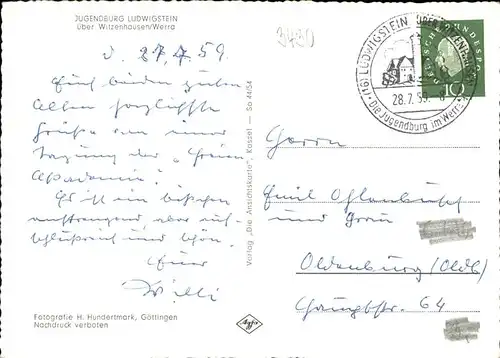 JUGENDBURG LUDWIGSTEIN
Über Witzenhausen/Werra
3430
(16) LUDWIGSTEIN ÜBER WITZENHAUSEN
28.7.59.
Die Jugendburg im Werra
DEUTSCHE BUNDESPOST
10
27.7.59.
Euch beiden
allen
Grüße von einer
Tagung der "Freien
Akademie".
Es ist ein bißchen
anstrengend, aber auf-
schlußreich und schön.
Euer
Willi
Verlag „Die Ansichtskarte", Kassel - So 44/54
Herrn
Emil
und Frau
Oldenburg (Oldb)
Hauptstr. 64
Fotografie H. Hundertmark, Göttingen
Nachdruck verboten
Agfa